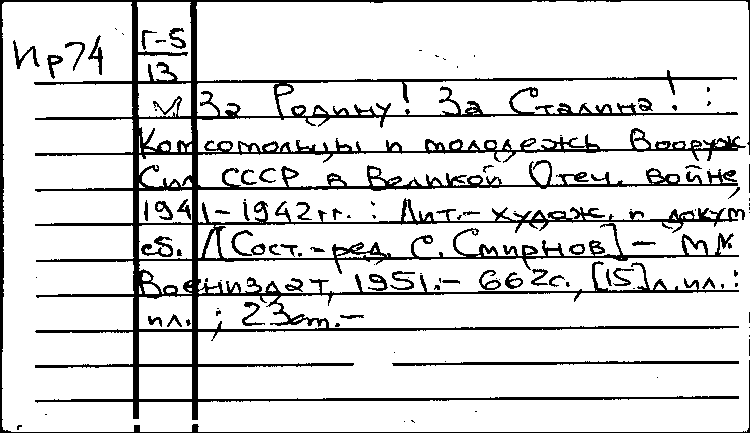 Ир74
Г-5
13
За Родину! За Сталина! :
Комсомольцы и молодежь Вооруж
Сил СССР в Великой Отеч. войне,
1941-1942гг. : Лит.- худож. и докум
сб. /[Сост.-ред. С. Смирнов] -
Воениздат, 1951.- 662с., [15]л.ил. :
ил. ; 23см.-